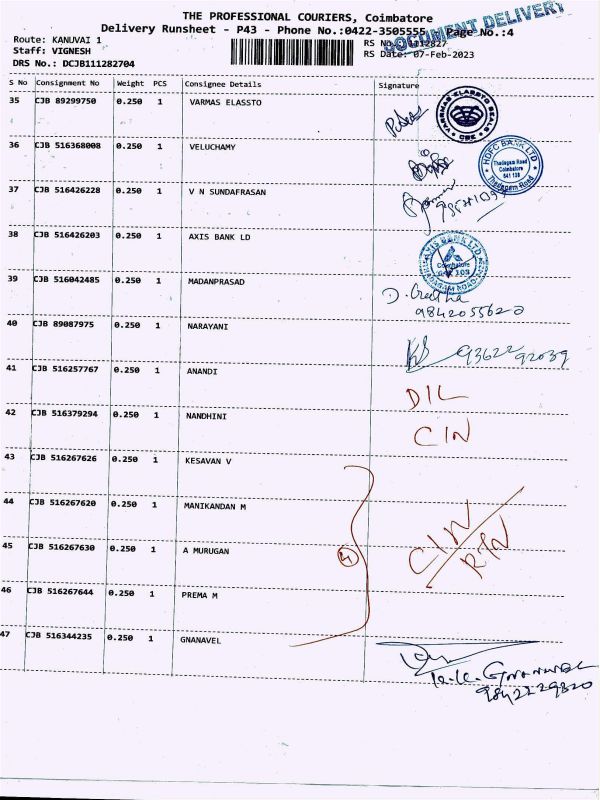 THE PROFESSIONAL COURIERS, Coimbatore
Delivery Runsheet - P43 - Phone No.:0422-3505555 Page No.:4
DOCUMENT DELIVERY
Route: KANUVAI 1
Staff: VIGNESH
DRS No.: DCJB111282704
RS No.:
RS Date: 07-Feb-2023
S No Consignment No Weight PCS Consignee Details Signature
35 CJB 89299750 0.250 1 VARMAS ELASSTO
36 CJB 516368008 0.250 1 VELUCHAMY
HDFC BANK LTD
Thadagam Road
Coimbatore
641 108
Thadagam Road
37 CJB 516426228 0.250 1 V N SUNDAFRASAN
38 CJB 516426203 0.250 1 AXIS BANK LD
AXIS BANK LTD
Coimbatore
39 CJB 516042485 0.250 1 MADANPRASAD
D. Geetha
9842055620
40 CJB 89087975 0.250 1 NARAYANI
93622 92039
41 CJB 516257767 0.250 1 ANANDI
DIL
42 CJB 516379294 0.250 1 NANDHINI
CIN
43 CJB 516267626 0.250 1 KESAVAN V
44 CJB 516267620 0.250 1 MANIKANDAN M
CIN
RTN
45 CJB 516267630 0.250 1 A MURUGAN
4
46 CJB 516267644 0.250 1 PREMA M
47 CJB 516344235 0.250 1 GNANAVEL
9842229820